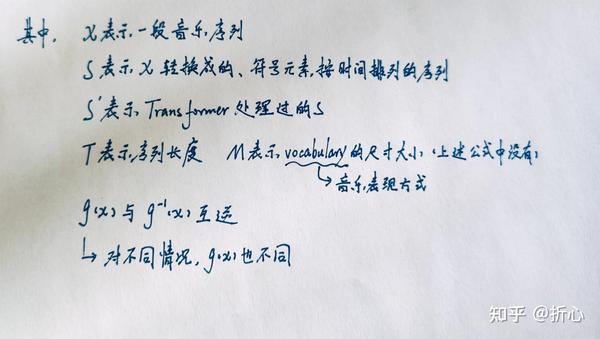 其中，x表示一段音乐序列
S表示x转换成的、符号元素，按时间排列的序列
S'表示Transformer处理过的S
T表示序列长度 M表示vocabulary的尺寸大小（上述公式中没有）
↳音乐表现方式
g(x)与g⁻¹(x)互逆
↳对不同情况，g(x)也不同
知乎 @折心